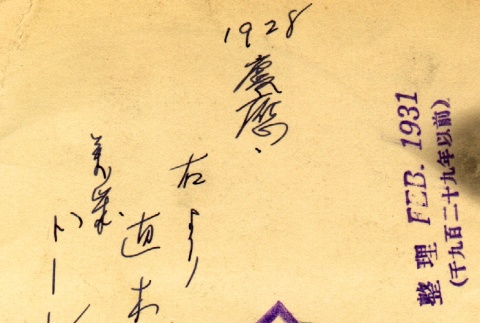 1928
慶應、
右ヨリ
直木
整理 FEB. 1931
(千九百二十九年以前)